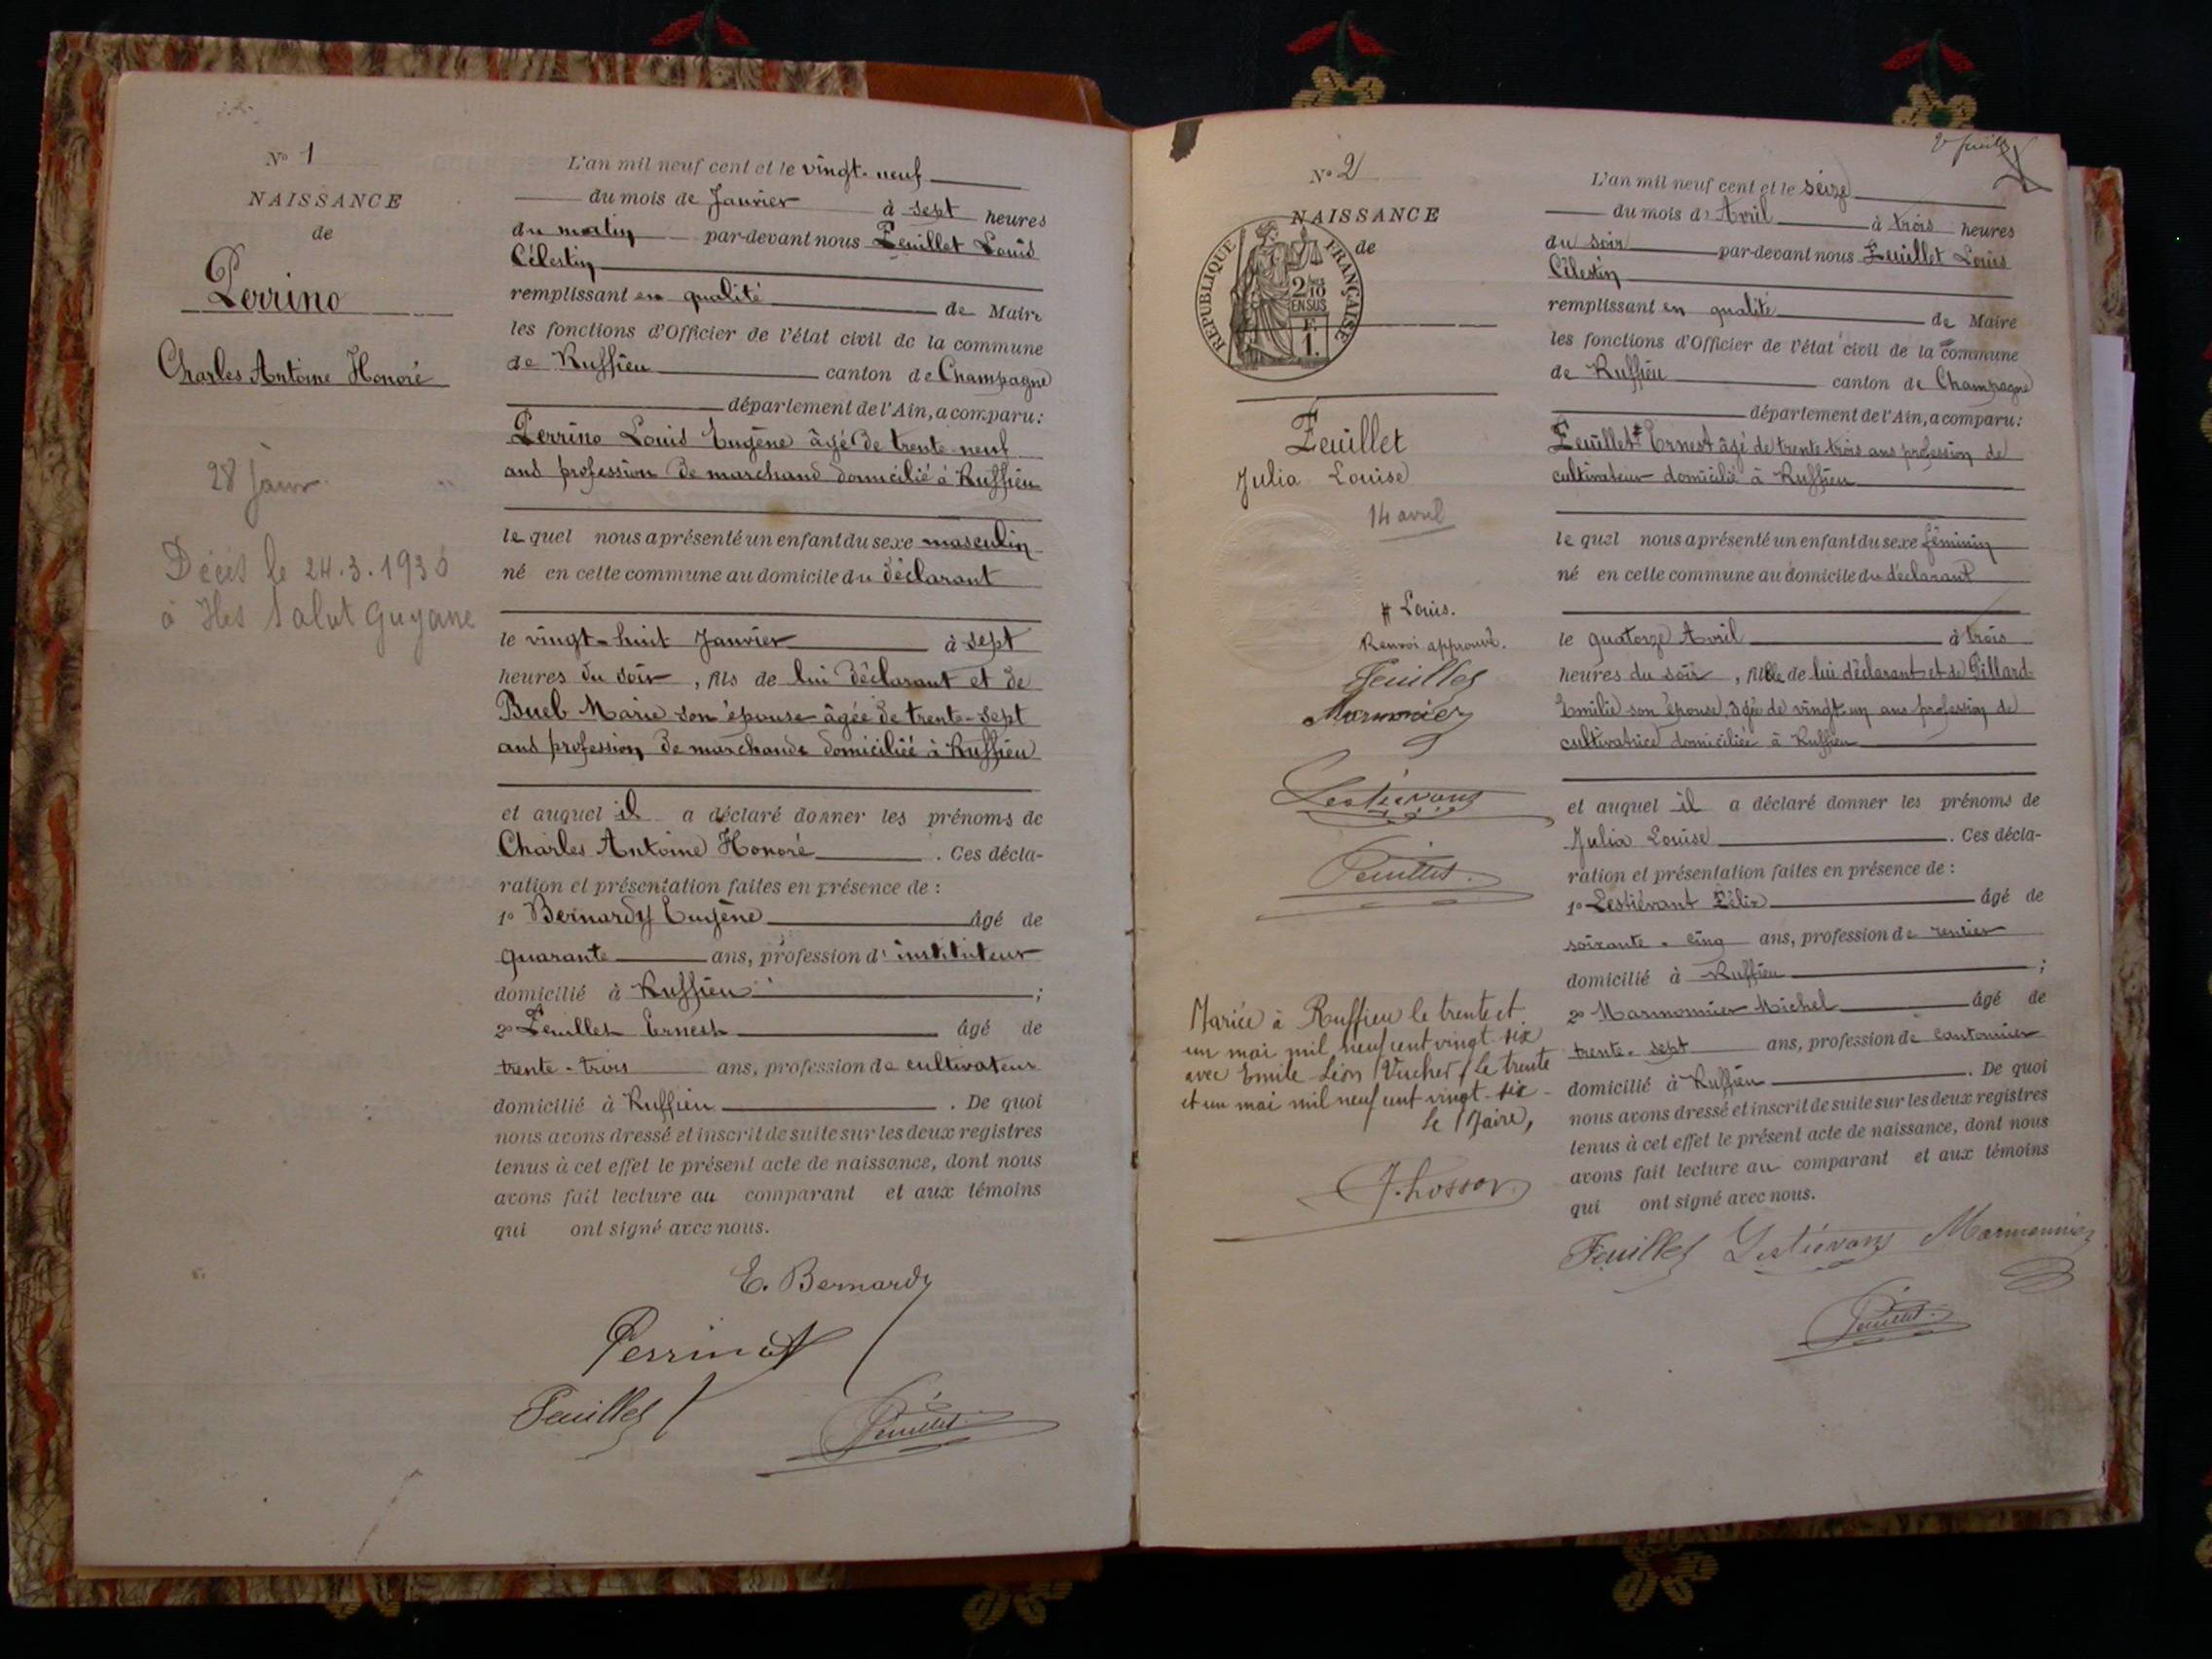 N° 1
NAISSANCE
de
Perrino
Charles Antoine Honoré
28 janv.
Décès le 24.3.1936
à Iles Salut Guyane
L'an mil neuf cent et le vingt-neuf
du mois de Janvier à sept heures
du matin par-devant nous Feuillet Louis
Célestin
remplissant en qualité de Maire
les fonctions d'Officier de l'état civil de la commune
de Ruffieu canton de Champagne
département de l'Ain, a comparu:
Perrino Louis Eugène âgé de trente-neuf
ans profession de marchand domicilié à Ruffieu
lequel nous a présenté un enfant du sexe masculin
né en cette commune au domicile du déclarant
le vingt-huit Janvier à sept
heures du soir, fils de lui déclarant et de
Bueb Marie son épouse âgée de trente-sept
ans profession de marchande domiciliée à Ruffieu
et auquel il a déclaré donner les prénoms de
Charles Antoine Honoré. Ces décla-
ration et présentation faites en présence de:
1° Bernardy Eugène âgé de
quarante ans, profession d'instituteur
domicilié à Ruffieu;
2° Feuillet Ernest âgé de
trente-trois ans, profession de cultivateur
domicilié à Ruffieu. De quoi
nous avons dressé et inscrit de suite sur les deux registres
tenus à cet effet le présent acte de naissance, dont nous
avons fait lecture au comparant et aux témoins
qui ont signé avec nous.
E. Bernardy
Perrino
Feuillet
Feuillet
2e feuillet
N° 2
NAISSANCE
de
REPUBLIQUE FRANÇAISE
2/10
EN SUS
F.
1.
Feuillet
Julia Louise
14 avril
# Louis.
Renvoi approuvé.
Feuillet
Marmonier
Lestiévant
Feuillet
Mariée à Ruffieu le trente et
un mai mil neuf cent vingt-six
avec Emile Léon Vucher / Le trente
et un mai mil neuf cent vingt-six
le Maire,
L'an mil neuf cent et le seize
du mois d'Avril à trois heures
du soir par-devant nous Feuillet Louis
Célestin
remplissant en qualité de Maire
les fonctions d'Officier de l'état civil de la commune
de Ruffieu canton de Champagne
département de l'Ain, a comparu:
Feuillet # Ernest âgé de trente trois ans profession de
cultivateur domicilié à Ruffieu
lequel nous a présenté un enfant du sexe féminin
né en cette commune au domicile du déclarant
le quatorze Avril à trois
heures du soir, fille de lui déclarant et de Pillard
Emilie son épouse, âgée de vingt-un ans profession de
cultivatrice domiciliée à Ruffieu
et auquel il a déclaré donner les prénoms de
Julia Louise. Ces décla-
ration et présentation faites en présence de:
1° Lestiévant Félix âgé de
soixante-cinq ans, profession de rentier
domicilié à Ruffieu;
2° Marmonnier Michel âgé de
trente-sept ans, profession de cantonnier
domicilié à Ruffieu. De quoi
nous avons dressé et inscrit de suite sur les deux registres
tenus à cet effet le présent acte de naissance, dont nous
avons fait lecture au comparant et aux témoins
qui ont signé avec nous.
Feuillet Lestiévant Marmonnier
Feuillet